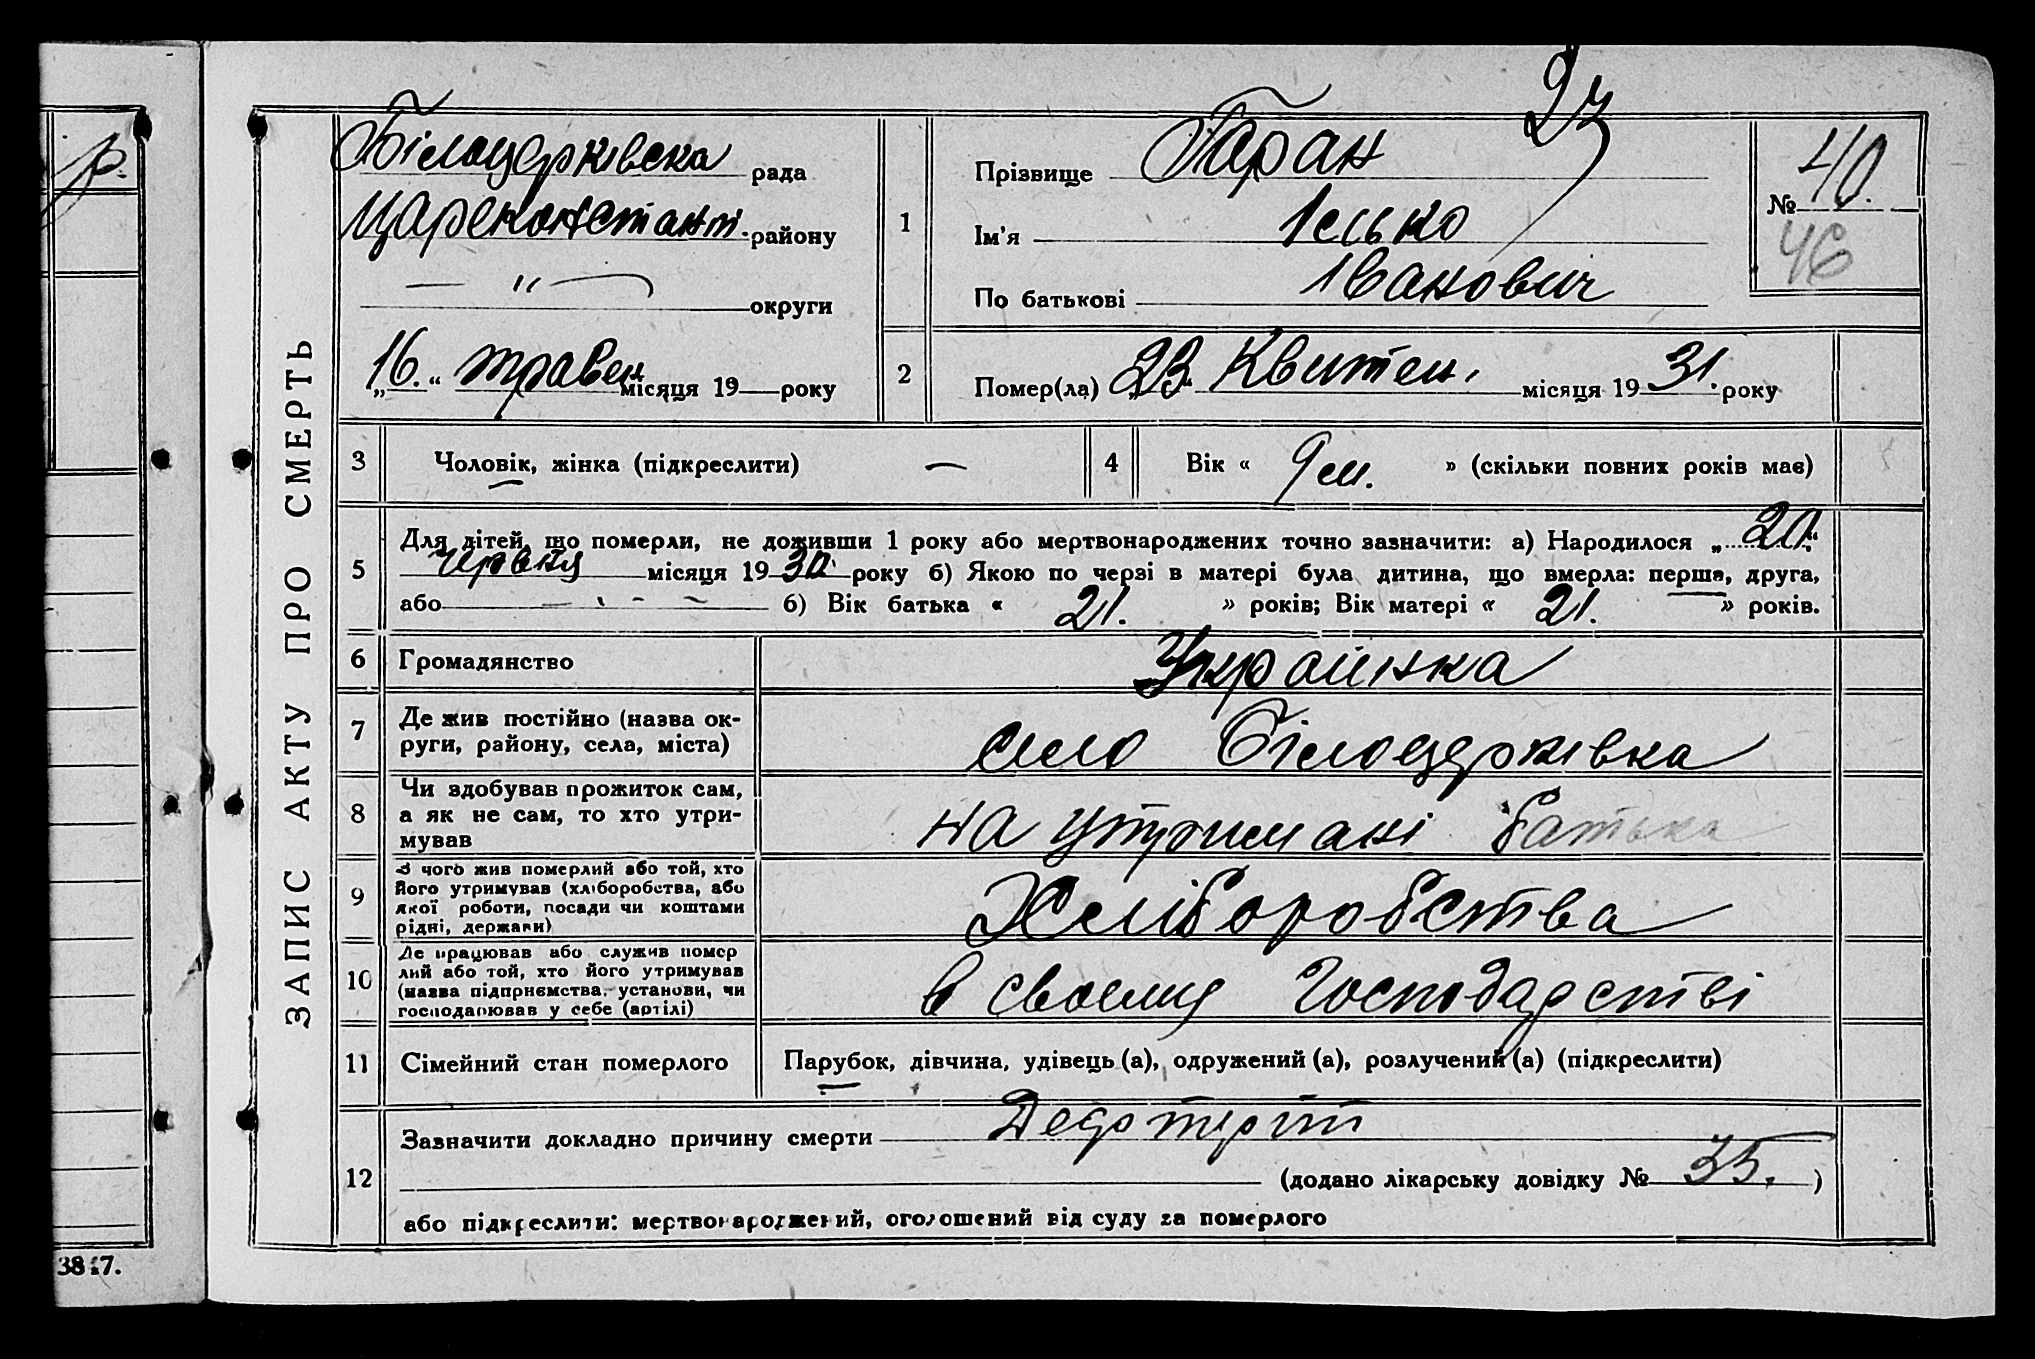 р.
3847.
ЗАПИС АКТУ ПРО СМЕРТЬ
Білоцерківска рада
Царекостант. району
— " — округи
„16.“ травен місяця 19 року
23
1 Прізвище Таран
Ім'я Ісько
По батькові Іванович
№ 40.
46
2 Помер(ла) „23“ Квитен. місяця 19 31. року
3 Чоловік, жінка (підкреслити) —
4 Вік « 9 м. » (скільки повних років має)
5 Для дітей, що померли, не доживши 1 року або мертвонароджених точно зазначити: а) Народилося „20“
червня місяця 19 30 року б) Якою по черзі в матері була дитина, що вмерла: перша, друга,
або — - - - б) Вік батька « 21. » років; Вік матері « 21. » років.
6 Громадянство Украінка
7 Де жив постійно (назва округи, району, села, міста) село Білоцерківка
8 Чи здобував прожиток сам, а як не сам, то хто утримував на утримані батька
9 З чого жив померлий або той, хто його утримував (хліборобства, або якої роботи, посади чи коштами рідні, держави) Хліборобства
10 Де працював або служив помер лий або той, хто його утримував (назва підприємства, установи, чи господарював у себе (артілі) в своему господарстві
11 Сімейний стан померлого Парубок, дівчина, удівець (а), одружений (а), розлучений (а) (підкреслити)
12 Зазначити докладно причину смерти
(додано лікарську довідку № 35. )
або підкреслити: мертвонароджений, оголошений від суду за померлого